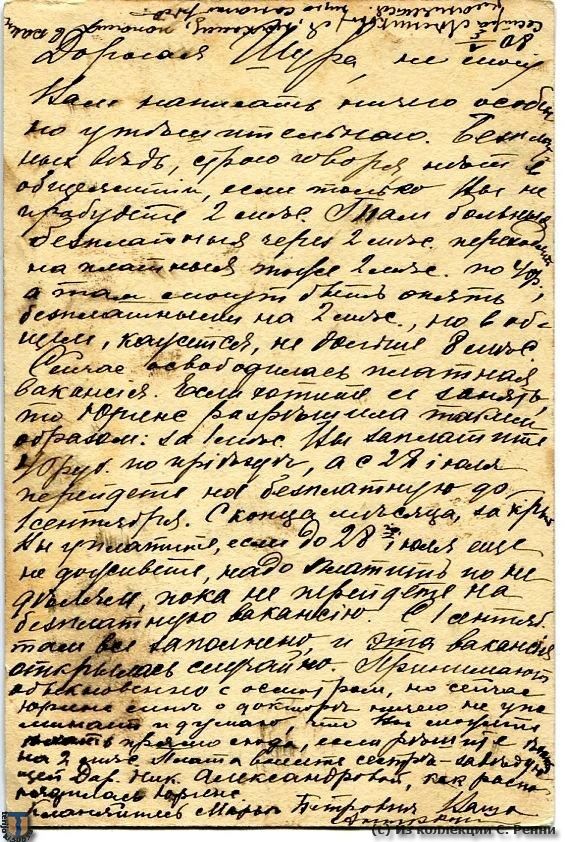 Дорогая Шура, не могу
Вам написать ничего особен
но утѣшительнаго. Безплат
ныхъ вѣдь, строго говоря нѣтъ въ
общежитіи, если только Вы не
пробудете 2 мѣс. Тамъ больныя
безплатныя черезъ 2 мѣс. переходятъ
на платныя тоже 2 мѣс. по 40 р,
а тамъ могутъ быть опять
безплатными на 2 мѣс., но в об-
щем, кажется, не больше 8 мѣс
Сейчас освободилась платная
вакансія. Если хотите ее занять,
то Юренс разрѣшила таким
образом: за 1 мѣс. Вы заплатите
40 руб. по пріѣздѣ, а с 28 іюля
перейдете на безплатную до
1 сентября. С конца мѣсяца,
Вы уплатите, если до 28 іюля еще
не доживете, надо платить по не
дѣлям, пока не перейдете на
безплатную вакансію. С 1 сентяб.
там все заполнено, и эта вакансія
открылась случайно. Принимают
обыкновенно с осмотром, но сейчас
Юренс мнѣ о докторѣ ничего не упо
минает и думаю, что Вы можете
ѣхать прямо сюда, если рѣшите
на 2 мѣс. Плата вносите сестрѣ-завѣдую
щей Дар. Ник. Александровой, как распо
рядилась Юренс
Кланяйтесь Марьѣ Петровнѣ Ваша
(с) Из коллекции С. Ренни